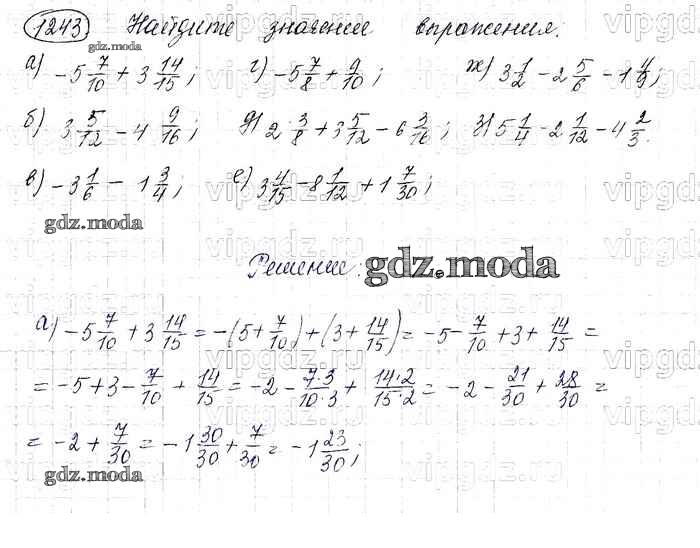 1243 Найдите значение выражения.
gdz.moda
а) -5 7/10 + 3 14/15; г) -5 7/8 + 9/10; ж) 3 1/2 - 2 5/6 - 1 4/9;
б) 3 5/12 - 4 9/16; д) 2 3/8 + 3 5/12 - 6 3/16; з) 5 1/4 - 2 1/12 - 4 2/3.
в) -3 1/6 - 1 3/4; е) 3 4/15 - 8 1/12 + 1 7/30;
gdz.moda
Решение: gdz.moda
а) -5 7/10 + 3 14/15 = -(5 + 7/10) + (3 + 14/15) = -5 - 7/10 + 3 + 14/15 =
= -5 + 3 - 7/10 + 14/15 = -2 - 7·3/10·3 + 14·2/15·2 = -2 - 21/30 + 28/30 =
= -2 + 7/30 = -1 30/30 + 7/30 = -1 23/30;
gdz.moda